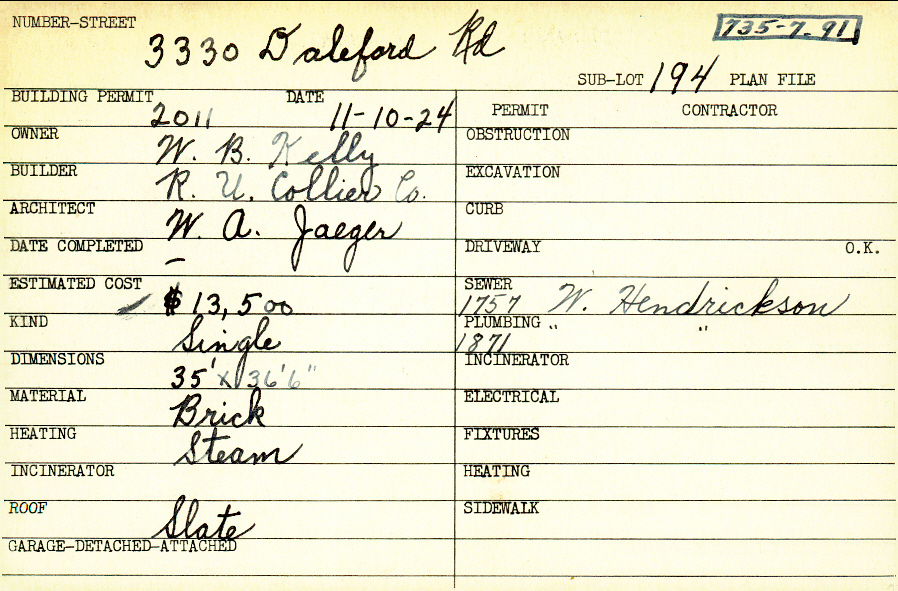 NUMBER-STREET 3330 Daleford Rd 735-7-91
SUB-LOT 194 PLAN FILE
BUILDING PERMIT 2011 DATE 11-10-24
OWNER W. B. Kelly
BUILDER R. U. Collier Co.
ARCHITECT W. A. Jaeger
DATE COMPLETED –
ESTIMATED COST $13,500
KIND Single
DIMENSIONS 35' x 36'6"
MATERIAL Brick
HEATING Steam
INCINERATOR
ROOF Slate
GARAGE-DETACHED-ATTACHED
PERMIT CONTRACTOR
OBSTRUCTION
EXCAVATION
CURB
DRIVEWAY O.K.
SEWER 1757 W. Hendrickson
PLUMBING 1871 " "
INCINERATOR
ELECTRICAL
FIXTURES
HEATING
SIDEWALK